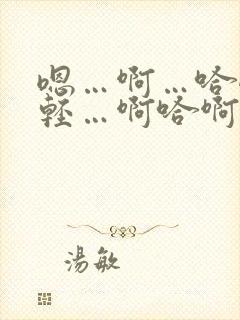 嗯...啊...哈
輕...啊哈啊
湯敏